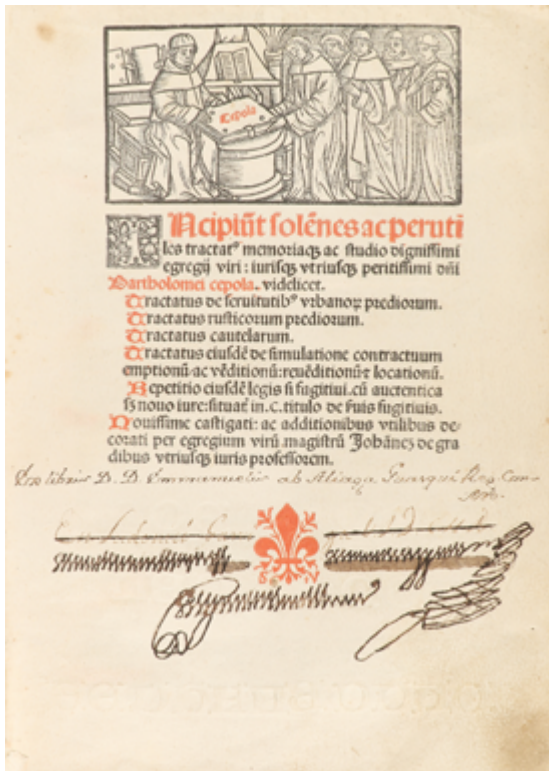 Cepola
INcipiũt solẽnes ac peruti
les tractatꝰ memoriaqꝫ ac studio dignissimi
egregij viri : iurisqꝫ vtriusqꝫ peritissimi dñi
Bartholomei cepola. videlicet.
Tractatus de seruitutibꝰ vrbanoꝝ prediorum.
Tractatus rusticorum prediorum.
Tractatus cautelarum.
Tractatus eiusdẽ de simulatione contractuum
emptionũ ac vẽditionũ: reuẽditionũ ⁊ locationũ.
Repetitio eiusdẽ legis si fugitiui. cũ auctentica
sꝫ nouo iure: situat̃ in. C. titulo de suis fugitiuis.
Nouissime castigati: ac additionibus vtilibus de-
corati per egregium virũ magistrũ Johãneꝫ de gra
dibus vtriusqꝫ iuris professorem.
Ex libris D. D. Emmanuelis ab Aliaga